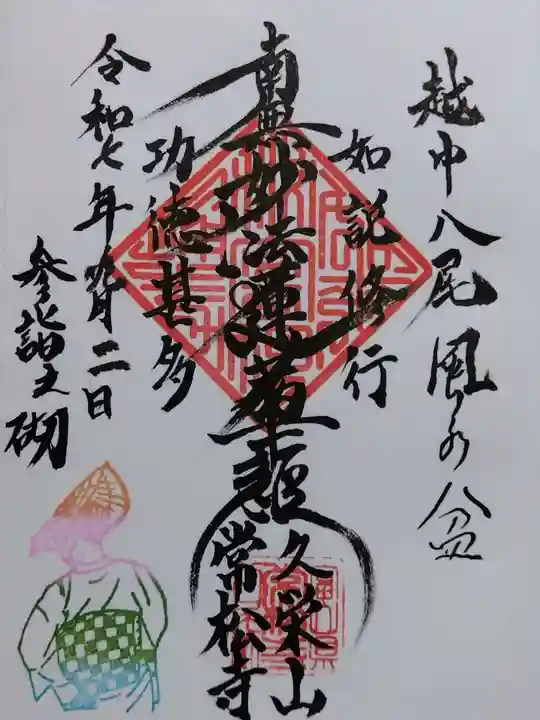 越中八尾風の盆
如説修行
南無妙法蓮華経
功徳甚多
久栄山
常松寺
令和七年九月二日
参詣之砌